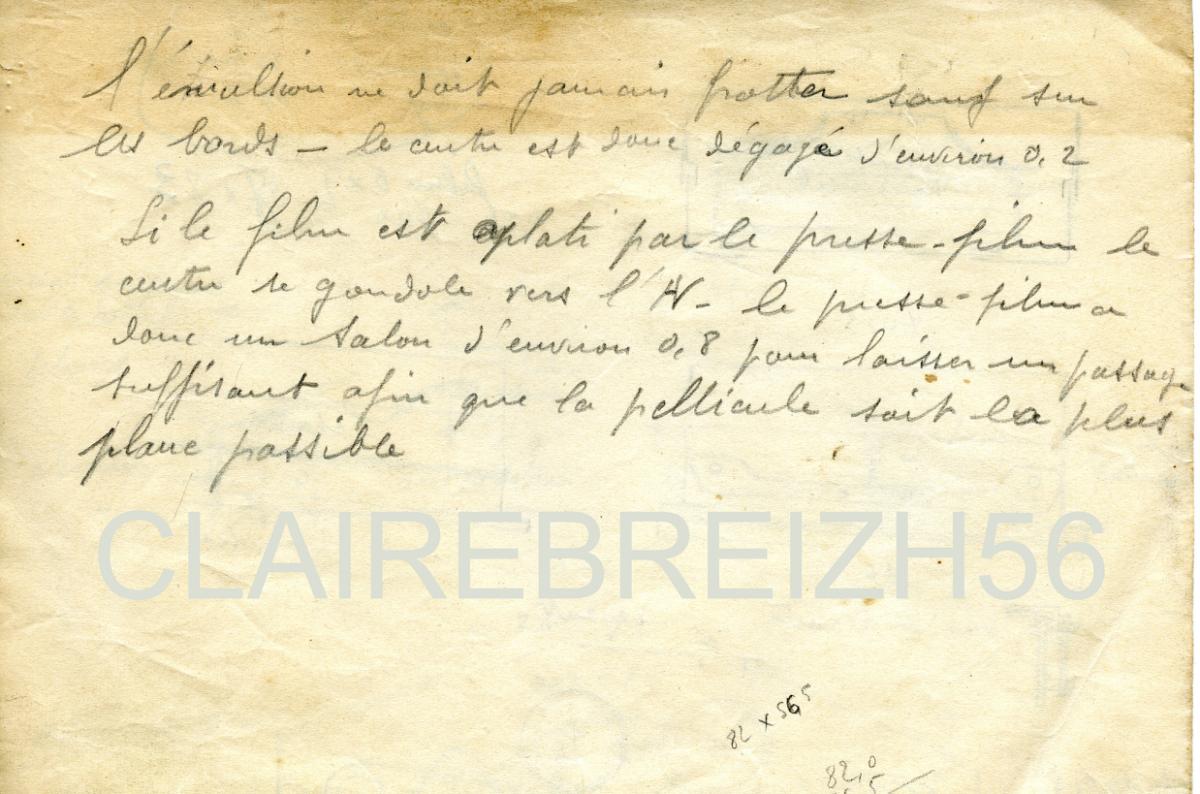 l'émulsion ne doit jamais frotter sauf sur
les bords – le centre est donc dégagé d'environ 0,2
Si le film est aplati par le presse-film le
centre se gondole vers l'AV – le presse-film a
donc un talon d'environ 0,8 pour laisser un passage
suffisant afin que la pellicule soit la plus
plane possible
CLAIREBREIZH56
82 x 56,5